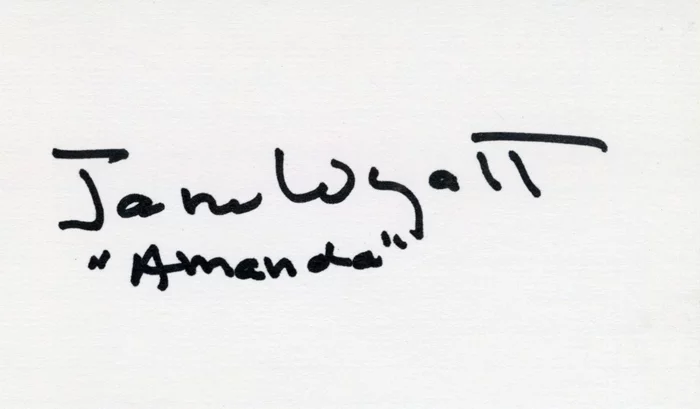 Jane Wyatt
"Amanda"